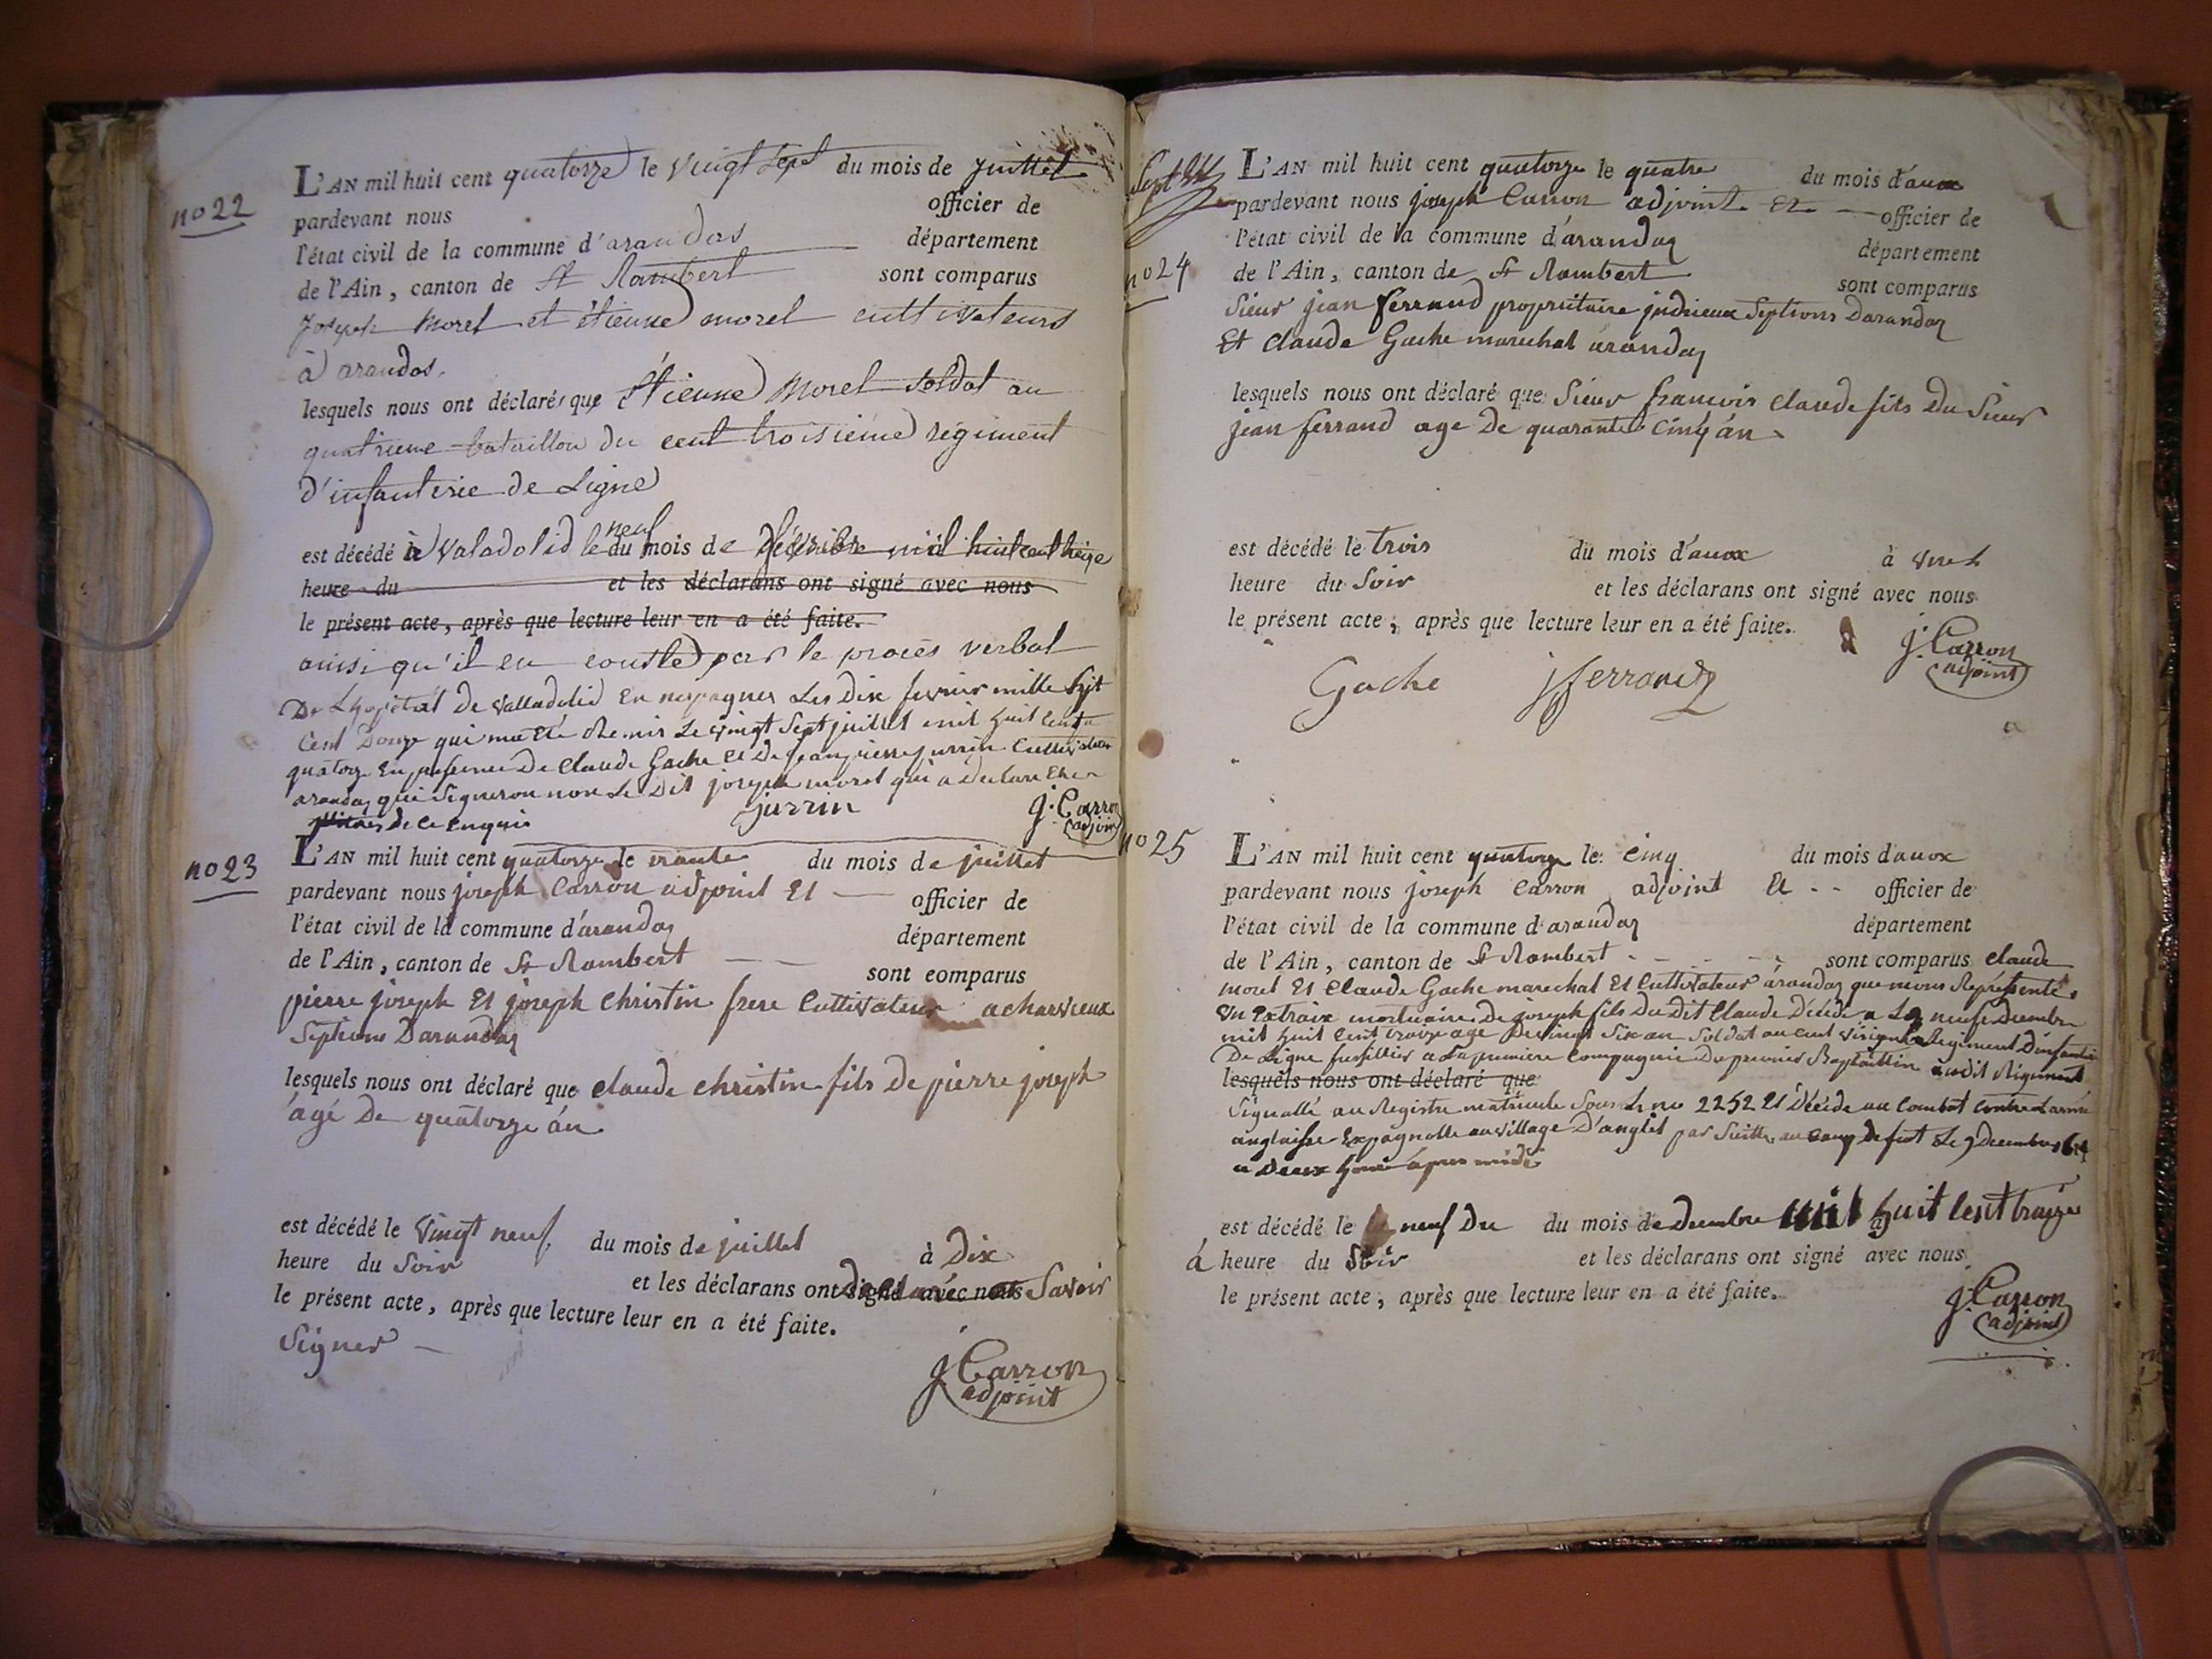 no 22
L'AN mil huit cent quatorze le vingt sept du mois de juillet
pardevant nous officier de
l'état civil de la commune d'arandas département
de l'Ain, canton de St Rambert sont comparus
Joseph Morel et étienne morel cultivateurs
à arandas.
lesquels nous ont déclaré que Étienne Morel soldat au
quatrieme bataillon du cent troisième régiment
d'infanterie de Ligne
est décédé à Valadolid le neuf du mois de mil huit cent
heure du et les déclarans ont signé avec nous
le présent acte, après que lecture leur en a été faite.
ainsi qu'il en conste par le procès verbal
De Lhopital de valladolid en Les Dix fevrier mille
Cent Douze qui Le vingt Sept juillet mil huit Cent
quatorze En presence De Claude Gache et De jean pierre jurrin Cultivateur
arandaz qui Signeron non Le Dit joseph morel qui a declare
de ce enquis jurrin J. Carron
adjoint
no 23
L'AN mil huit cent quatorze le trante du mois de juillet
pardevant nous joseph Carron adjoint Et officier de
l'état civil de la commune d'arandaz département
de l'Ain, canton de St Rambert sont comparus
pierre joseph Et joseph Christin frere Cultivateur a charvieux
Septions Darandaz
lesquels nous ont déclaré que claude christin fils De pierre joseph
âgé De quatorze án
est décédé le vingt neuf du mois de juillet à Dix
heure du Soir et les déclarans ont signé avec nous Savoir
le présent acte, après que lecture leur en a été faite.
Signer
J Carron
adjoint
L'AN mil huit cent quatorze le quatre du mois d'auox
pardevant nous joseph Carron adjoint Et officier de
l'état civil de la commune d'arandaz département
no 24
de l'Ain, canton de St Rambert sont comparus
Sieur jean ferrand propriitaire jndrieux Septions Darandaz
Et claude Gache marechal arandaz
lesquels nous ont déclaré que Sieur francois claude fils Du Sieur
jean ferrand age De quarante Cinq án
est décédé le trois du mois d'auox à
heure du Soir et les déclarans ont signé avec nous
le présent acte, après que lecture leur en a été faite.
Gache jferrand J. Carron
adjoint
no 25
L'AN mil huit cent quatorze le Cinq du mois dauox
pardevant nous joseph Carron adjoint Et officier de
l'état civil de la commune d'arandaz département
de l'Ain, canton de St Rambert sont comparus claude
morel Et Claude Gache marechal Et Cultivateur arandaz que Représente
Un Extraix mortuaire De joseph fils Du Dit Claude Décédé Le neuf Decembre
mil huit Cent traize age De vingt Six an Soldat au cent Regiment Dinfanterie
De Ligne fusillier a La premiere Compagnie Du premier Bataillin audit Régiment
lesquels nous ont déclaré que
Signallé au Registre matricule Sous Le no 2252 Et Décédé au Combat Contre Larmé
anglaisse Expagnolle au village D'anglet par Suitte au coup de fut Le 9 Decembre
a Deux apres midi
est décédé le neuf Du du mois de decembre mil huit Cent traize
á heure du Soir et les déclarans ont signé avec nous
le présent acte, après que lecture leur en a été faite.
J. Carron
adjoint